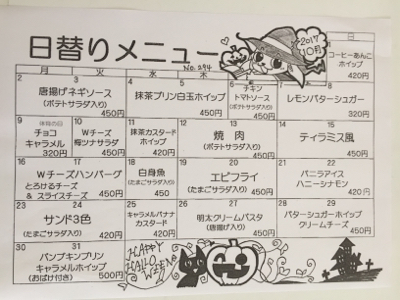 日替りメニュー
No. 294
2017
10月
月 火 水 木 金 土 日
1
コーヒーあんこ
ホイップ
420円
2 3
唐揚げネギソース
(ポテトサラダ入り)
450円
4 5
抹茶プリン白玉ホイップ
450円
6
チキン
トマトソース
(ポテトサラダ入り)
450円
7 8
レモンバターシュガー
320円
9
チョコ
キャラメル
320円
10
Wチーズ
梅ツナサラダ
450円
11
抹茶カスタード
ホイップ
420円
12 13
焼 肉
(ポテトサラダ入り)
450円
14 15
ティラミス風
450円
16 17
Wチーズハンバーグ
とろけるチーズ
& スライスチーズ
450円
18
白身魚
(たまごサラダ入り)
450
19 20
エビフライ
(たまごサラダ入り)
450円
21 22
バニラアイス
ハニーシナモン
420円
23 24
サンド3色
(たまご入り)
420円
25
キャラメルバナナ
カスタード
420円
26 27
明太クリームパスタ
(唐揚げ入り)
450円
28 29
バターシュガーホイップ
クリームチーズ
450円
30 31
パンプキンプリン
キャラメルホイップ
(おばけ付き)
500円
HAPPY
HALLO
WEEN